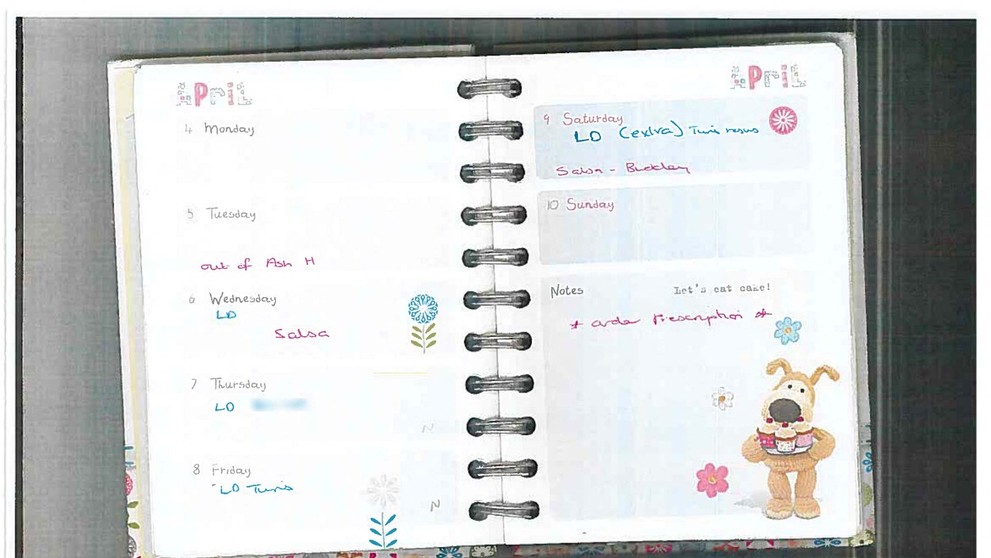 APRIL
4 Monday
5 Tuesday
out of Ash H
6 Wednesday
LD
Salsa
7 Thursday
LD
N
8 Friday
LD Twins
N
APRIL
9 Saturday
LD (extra) Twin resus
Salsa - Buckley
10 Sunday
Notes Let's eat cake!
* order Prescription *